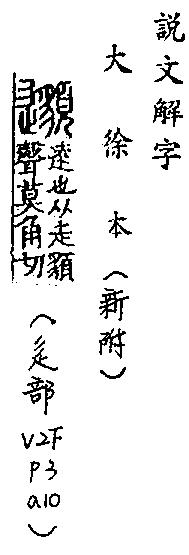 說文解字
大徐本（新附）
邈遠也从辵䫉
聲莫角切
（辵部
V2下
P3
a10）